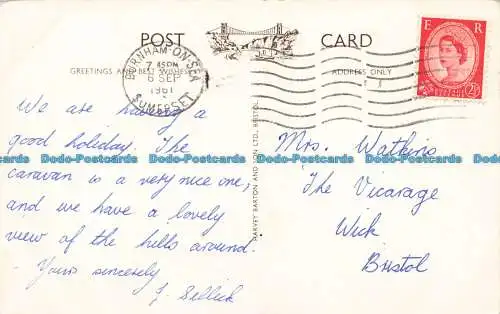 POST CARD
GREETINGS AND BEST WISHES
ADDRESS ONLY
BURNHAM-ON-SEA
7 45PM
6 SEP
1961
SOMERSET
E R
2½D
We are having a
good holiday. The
caravan is a very nice one,
and we have a lovely
view of the hills around.
Yours sincerely
J. Sellick
HARVEY BARTON AND SON LTD., BRISTOL
Mrs. Watkins
The Vicarage
Wick
Bristol
Dodo-Postcards Dodo-Postcards Dodo-Postcards Dodo-Postcards
Dodo-Postcards Dodo-Postcards Dodo-Postcards Dodo-Postcards